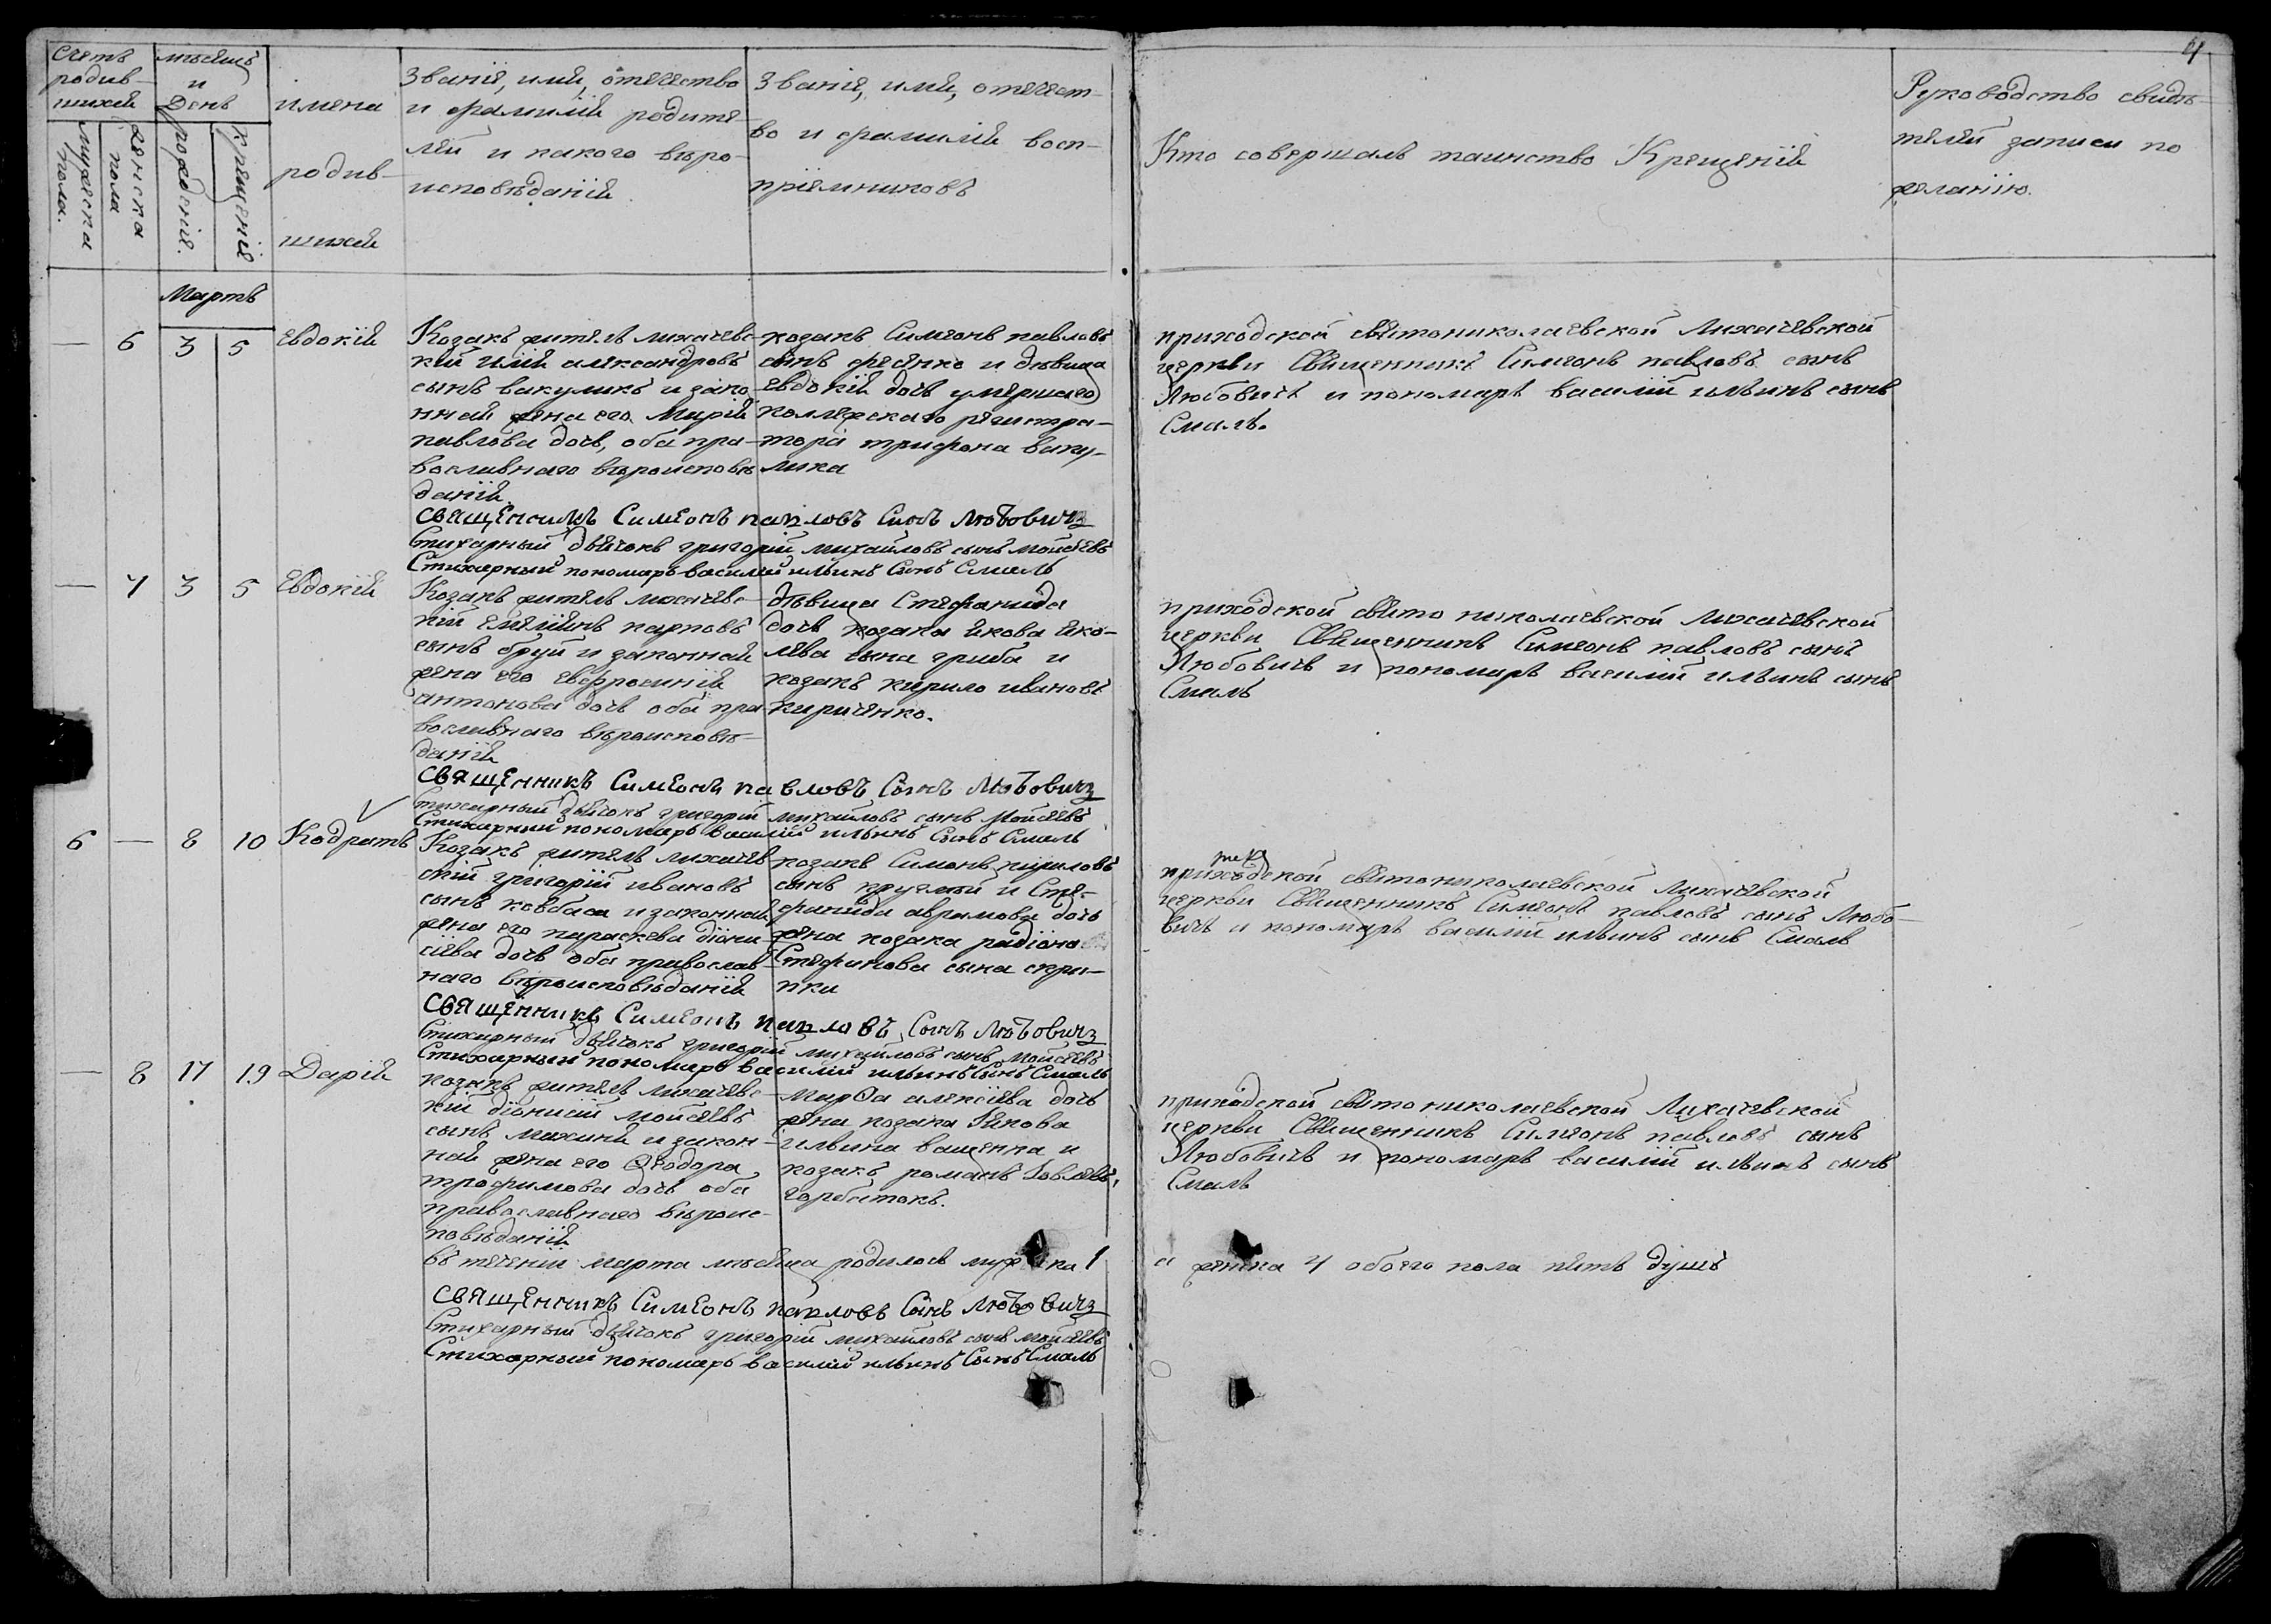 4
Счетъ
родив-
шихся
мѣсяцъ
и
День
мужеска
пола.
женска
пола
рожденія.
крещенія
имена
родив-
шихся
Званіе, имя, отечество
и фамилія родите-
лей и какого вѣро-
исповѣданія
Званіе, имя, отечест-
во и фамилія восп-
ріемниковъ
Кто совершалъ таинство Крещенія
Руководство свидѣ-
телей записи по
желанію.
Мартъ
— 6 3 5 Евдокія
Козакъ житель лихачевс-
кій Илія александровъ
сынъ вакуликъ и зако
нная жена его Марія
павлова дочь, оба пра-
вославнаго вѣроисповѣ
данія
козакъ Симеонъ павловъ
сынъ фесенко и дѣвица
Евдокія дочь умершаго
коллежскаго регистра-
тора трифона ваку-
лика
приходской свято николаевской Лихачевской
церкви Священникъ Симеонъ павловъ сынъ
Любовичъ и пономарь василій ильинъ сынъ
Смаль.
Священникъ Симеонъ павловъ Сынъ Любовичъ
Стихарный дьячокъ григорій михайловъ сынъ мойсеевъ
Стихарный пономарь василій ильинъ Сынъ Смаль
— 7 3 5 Евдокія
Козакъ житель лихачевс-
кій Емеліянъ карповъ
сынъ бруй и законная
жена его Евфросинія
антонова дочь оба пра-
вославнаго вѣроисповѣ-
данія
дѣвица Стефанида
дочь козака якова яко-
лева сына гриба и
козакъ кирило ивановъ
кириченко.
приходской свято николаевской Лихачевской
церкви Священникъ Симеонъ павловъ сынъ
Любовичъ и пономарь василій ильинъ сынъ
Смаль
Священникъ Симеонъ павловъ Сынъ Любовичъ
Стихарный дьячокъ григорій михайловъ сынъ мойсеевъ
Стихарный пономарь василій ильинъ Сынъ Смаль
6 — 8 10 Кодратъ
Козакъ житель лихачев-
скій григорій ивановъ
сынъ ковбаса и законная
жена его параскева діони-
сіева дочь оба православ-
наго вѣроисповѣданія
козакъ Симонъ
сынъ круглый и Сте-
фанида аврамова дочь
жена козака радіона
Стефанова сына скри-
пки
приходской свято николаевской Лихачевской
церкви Священникъ Симеонъ павловъ сынъ Любо-
вичъ и пономарь василій ильинъ сынъ Смаль
Священникъ Симеонъ павловъ Сынъ Любовичъ
Стихарный дьячокъ григорій михайловъ сынъ мойсеевъ
Стихарный пономарь василій ильинъ Сынъ Смаль
— 8 17 19 Дарія
козакъ житель лихачевс-
кій діонисій мойсеевъ
сынъ махиня и закон-
ная жена его Ѳеодора
трофимова дочь оба
православнаго вѣроис-
повѣданія
марѳа алексіева дочь
жена козака Якова
ильина ващенка и
козакъ романъ Іовлевъ,
горбатокъ.
приходской свято николаевской Лихачевской
церкви Священникъ Симеонъ павловъ сынъ
Любовичъ и пономарь василій ильинъ сынъ
Смаль
въ теченіи марта мѣсяца родилось мужеска 1 а женска 4 обоего пола пять душъ
Священникъ Симеонъ павловъ Сынъ Любовичъ
Стихарный дьячокъ григорій михайловъ сынъ мойсеевъ
Стихарный пономарь василій ильинъ Сынъ Смаль